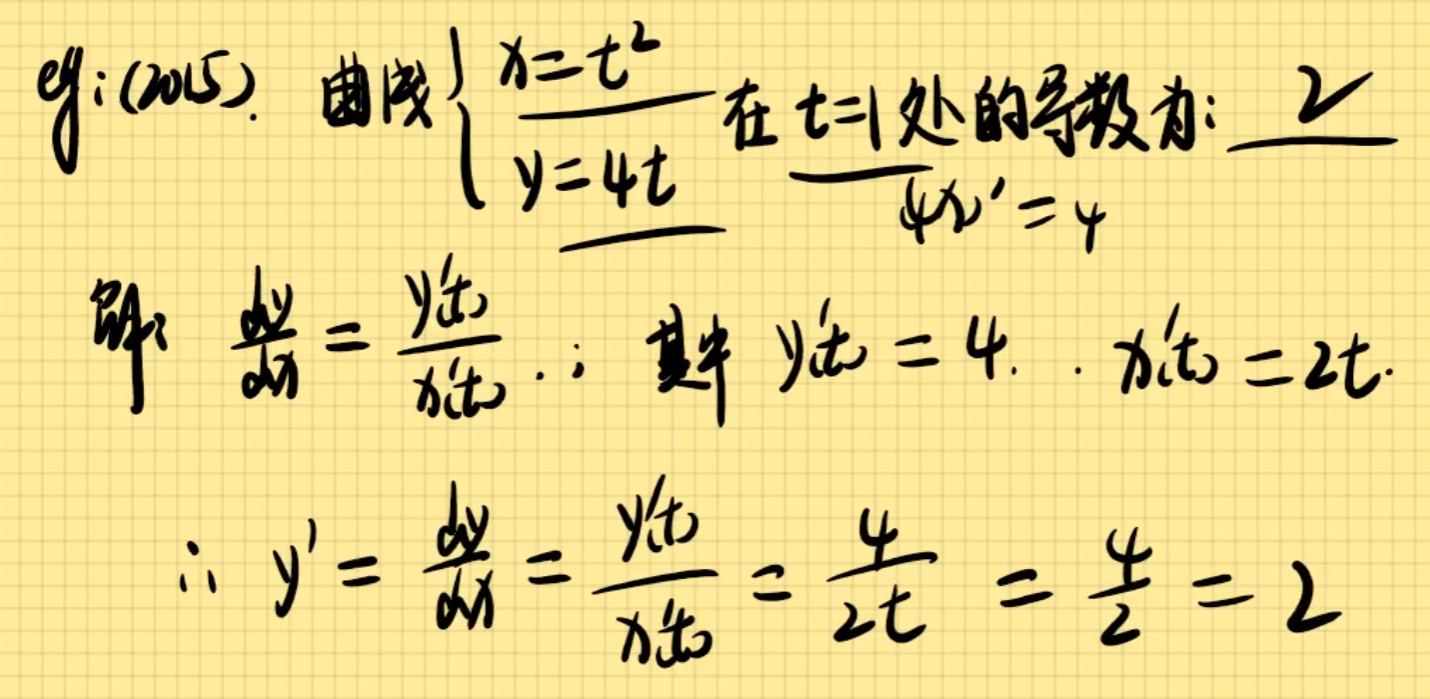 eg:(2015). 曲线{ x=t² y=4t 在 t=1 处的导数为: 2
4x'=4
解: dy/dx = y'(t)/x'(t) . ; 其中 y'(t) = 4. . x'(t) = 2t.
∴ y' = dy/dx = y'(t)/x'(t) = 4/2t = 4/2 = 2